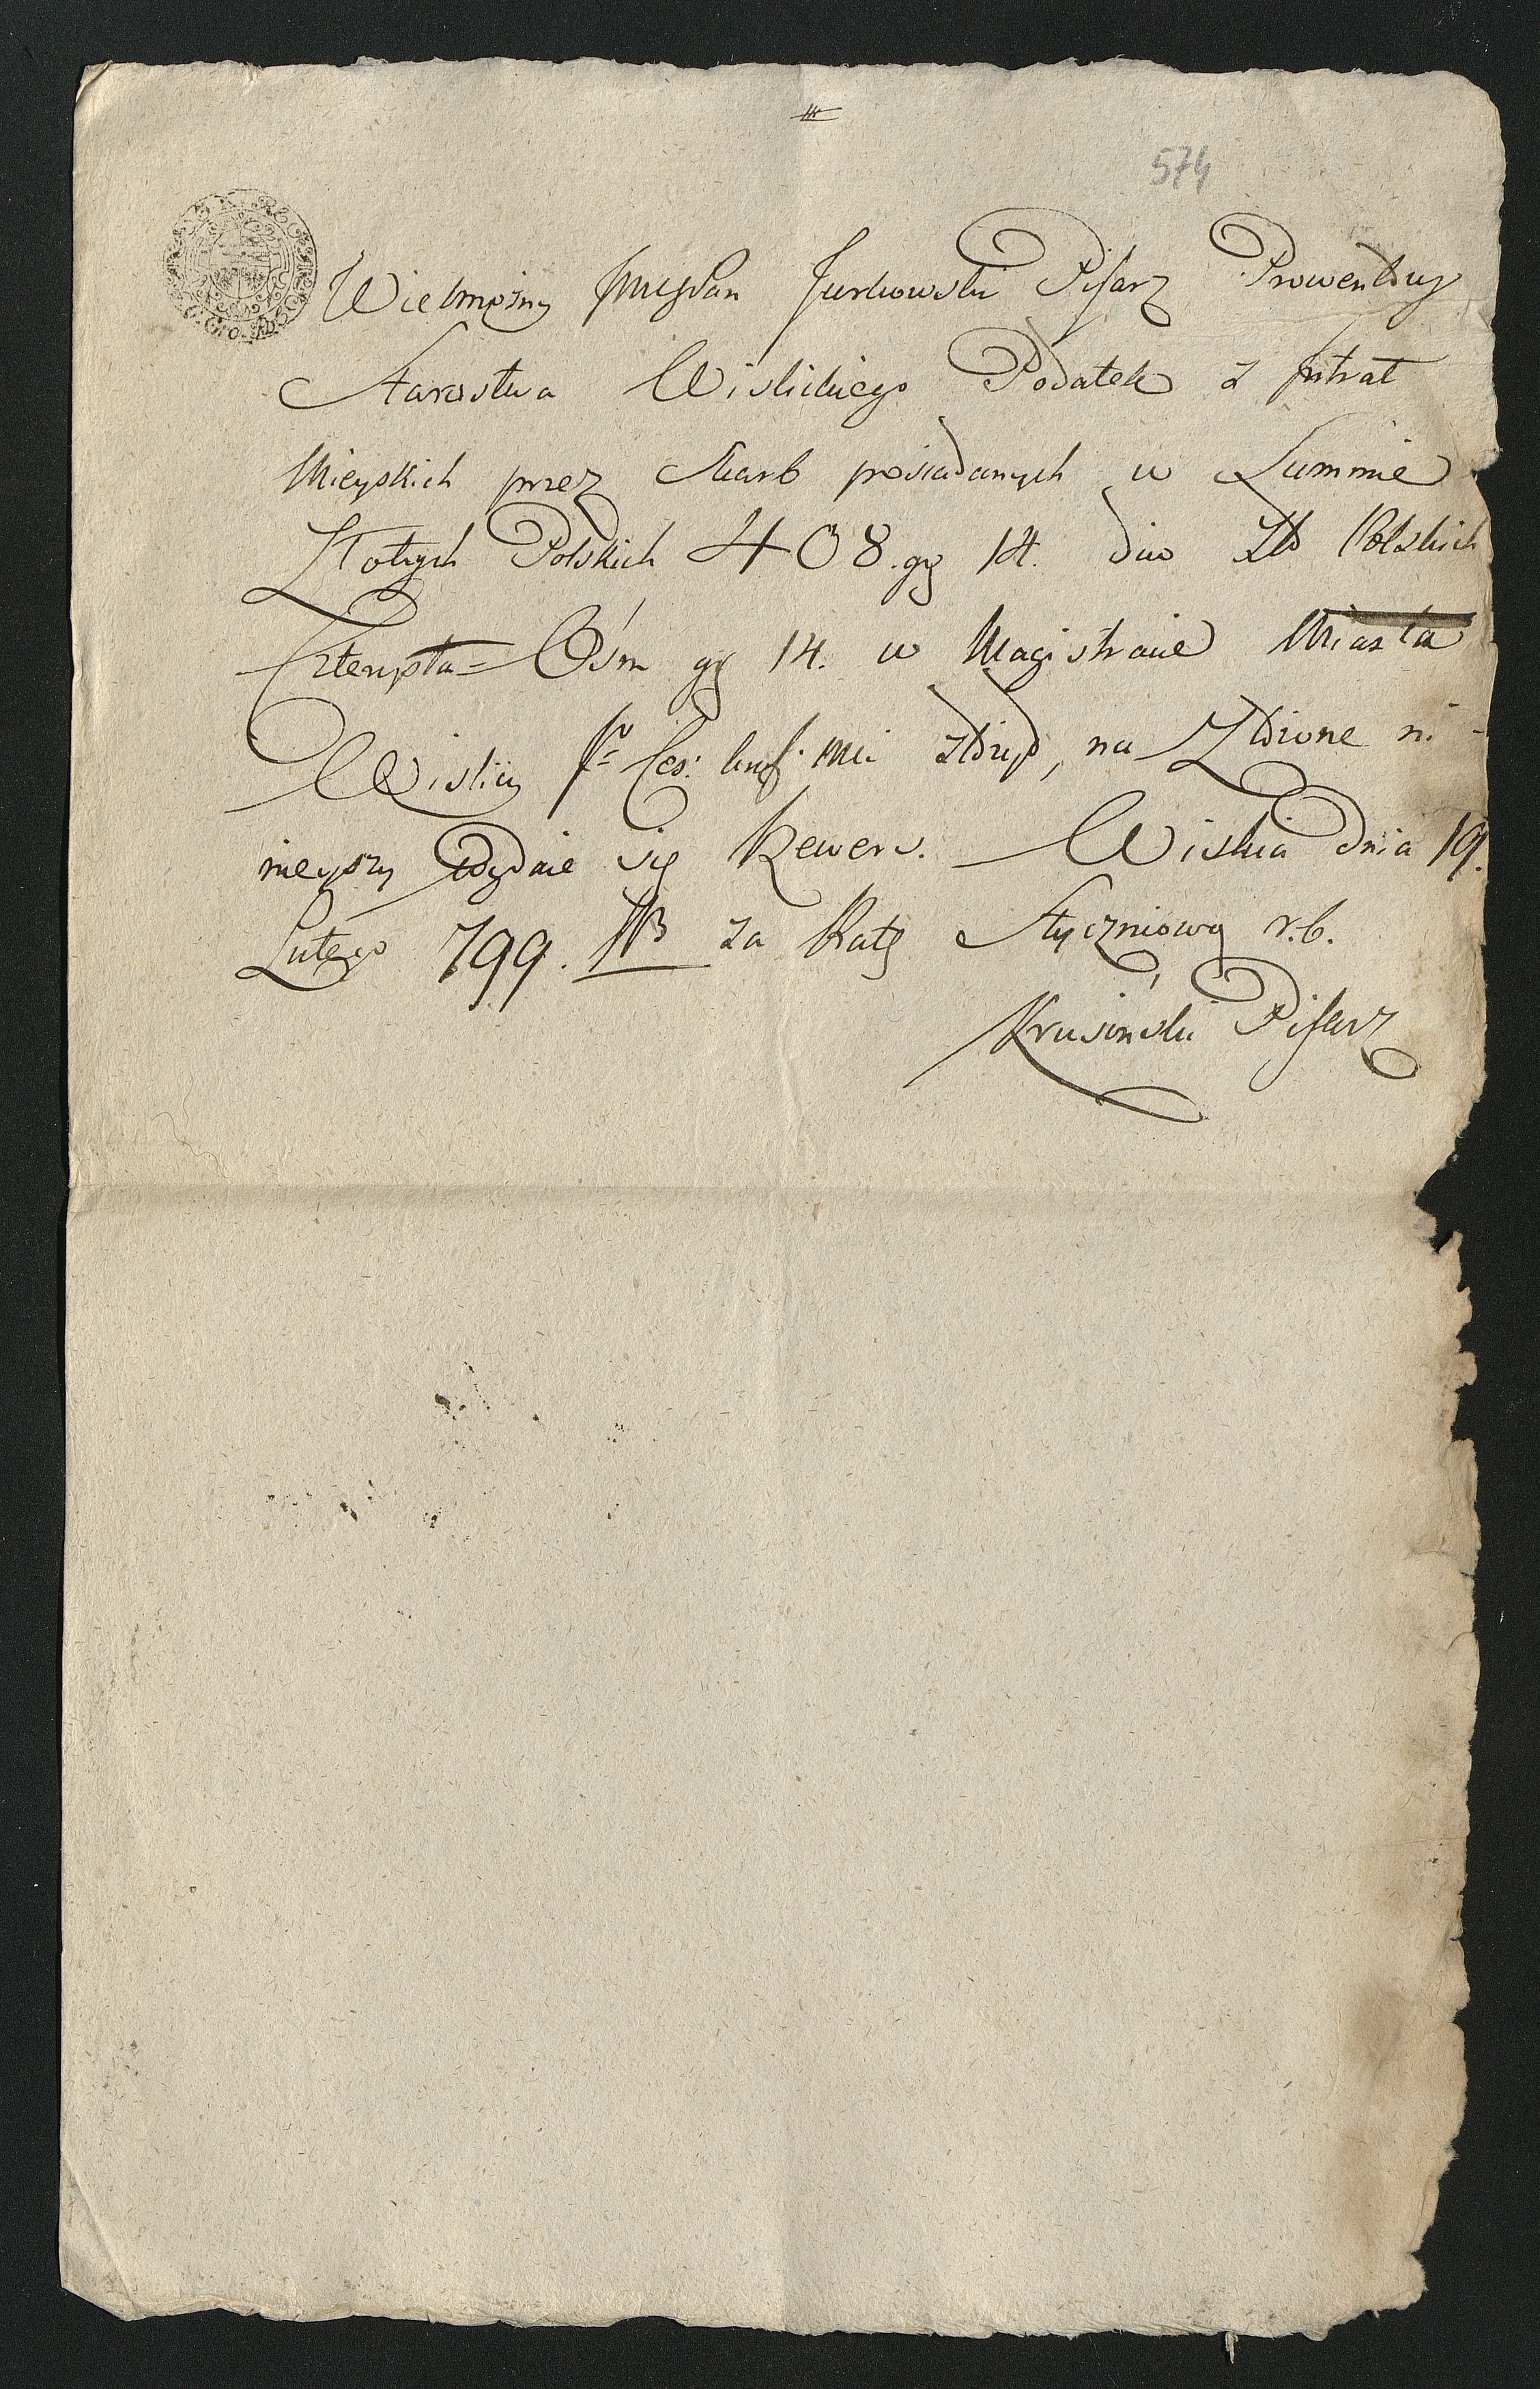 574
Wielmożny Jmć Pan Jurkowski Pisarz Prowentowy
Starostwa Wislickiego Podatek z Intrat
Mieyskich przez Skarb posiadanych w Summie
Złotych Polskich 408. gg 14. dico Zło Polskich
Czterysta = Ośm gg 14. w Magistracie Miasta
Wislicy Ces: na Złożone ni-
nieyszy Wydaie się Rewers. Wislica dnia 19.
Lutego 799. NB za Ratę Styczniową r. b.
Krusiński Pisarz